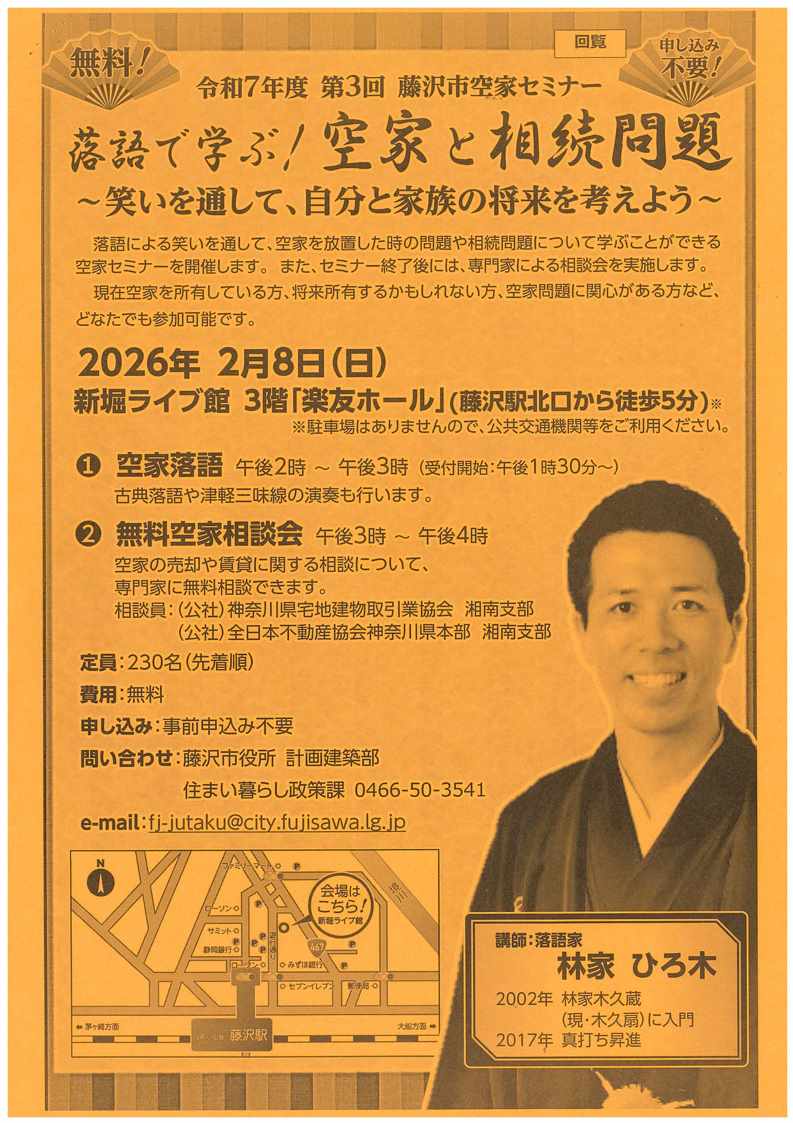 回覧
無料!
申し込み
不要!
令和7年度 第3回 藤沢市空家セミナー
落語で学ぶ! 空家と相続問題
～笑いを通して、自分と家族の将来を考えよう～
落語による笑いを通して、空家を放置した時の問題や相続問題について学ぶことができる
空家セミナーを開催します。また、セミナー終了後には、専門家による相談会を実施します。
現在空家を所有している方、将来所有するかもしれない方、空家問題に関心がある方など、
どなたでも参加可能です。
2026年 2月8日(日)
新堀ライブ館 3階「楽友ホール」(藤沢駅北口から徒歩5分)※
※駐車場はありませんので、公共交通機関等をご利用ください。
❶ 空家落語 午後2時 ～ 午後3時 (受付開始:午後1時30分～)
古典落語や津軽三味線の演奏も行います。
❷ 無料空家相談会 午後3時 ～ 午後4時
空家の売却や賃貸に関する相談について、
専門家に無料相談できます。
相談員:(公社)神奈川県宅地建物取引業協会 湘南支部
(公社)全日本不動産協会神奈川県本部 湘南支部
定員:230名(先着順)
費用:無料
申し込み:事前申込み不要
問い合わせ:藤沢市役所 計画建築部
住まい暮らし政策課 0466-50-3541
e-mail:fj-jutaku@city.fujisawa.lg.jp
N
ファミリーマート
P
境川
会場は
こちら!
新堀ライブ館
ローソン
P
サミット
P
P
静岡銀行
P
P
遊行通り
467
P
ローソン
みずほ銀行
P
セブンイレブン
郵便局
茅ヶ崎方面
藤沢駅
大船方面
講師:落語家
林家 ひろ木
2002年 林家木久蔵
(現・木久扇)に入門
2017年 真打ち昇進